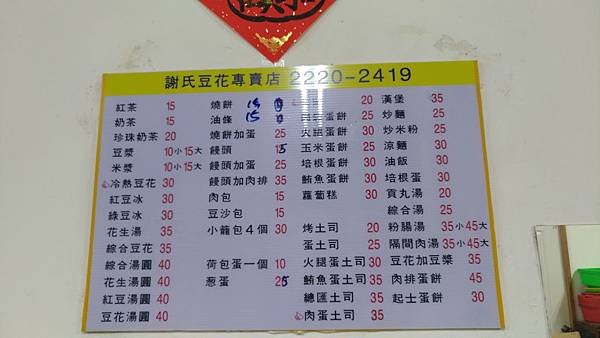 謝氏豆花專賣店 2220-2419
紅茶 15
奶茶 15
珍珠奶茶 20
豆漿 10小15大
米漿 10小15大
冷熱豆花 30
紅豆冰 30
綠豆冰 30
花生湯 35
綜合豆花 35
綜合湯圓 40
花生湯圓 40
紅豆湯圓 40
豆花湯圓 40
燒餅
油條 15
燒餅加蛋 25
饅頭 15
饅頭加蛋 25
饅頭加肉排 35
肉包 15
豆沙包 15
小籠包4個 30
荷包蛋一個 10
蔥蛋 25
20
蛋餅 25
火腿蛋餅 30
玉米蛋餅 30
培根蛋餅 30
鮪魚蛋餅 30
蘿蔔糕 30
烤土司 20
蛋土司 25
火腿蛋土司 30
鮪魚蛋土司 35
總匯土司 35
肉蛋土司 35
漢堡 35
炒麵 25
炒米粉 25
涼麵 30
油飯 30
培根蛋 30
貢丸湯 20
綜合湯 25
粉腸湯 35小45大
隔間肉湯 35小45大
豆花加豆漿 35
肉排蛋餅 45
起士蛋餅 30